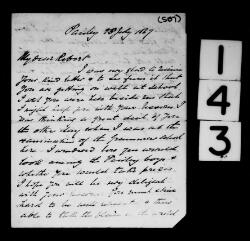 (507)
Paisley 28 July 1867
My dear Robert
I was very glad to receive
your kind letter & to see from it that
you are getting on well at school.
I wish you were here beside me that
I might help you with your lessons. I
was thinking a great deal of you
the other day when I was at the
examination of the Grammar School
here. I wondered how you would
look among the Paisley boys &
whether you would take prizes.
I hope you will be very diligent
with your lessons. You must strive
hard to be well and & thus
able to take the place in the world
1
4
3